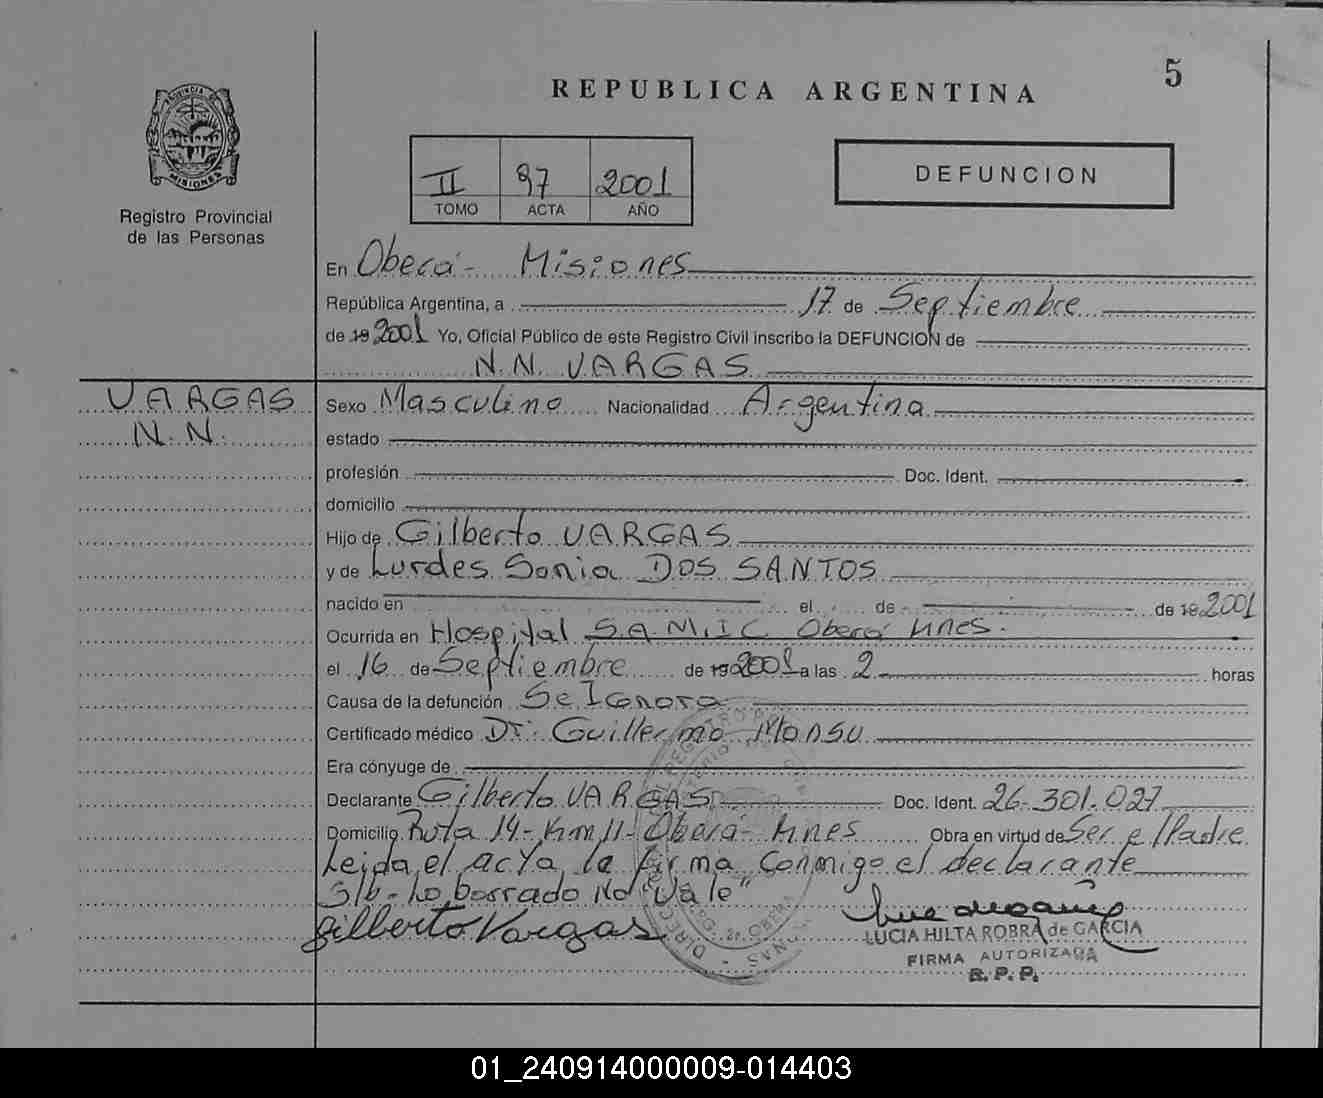 5
REPUBLICA ARGENTINA
PROVINCIA DE
MISIONES
Registro Provincial
de las Personas
II 97 2001
TOMO ACTA AÑO
DEFUNCION
En Oberá- Misiones
República Argentina, a 17 de Septiembre
de 19 2001 Yo, Oficial Público de este Registro Civil inscribo la DEFUNCION de
N.N. VARGAS
VARGAS
N. N.
Sexo Masculino Nacionalidad Argentina
estado
profesión Doc. Ident.
domicilio
Hijo de Gilberto VARGAS
y de Lurdes Sonia DOS SANTOS
nacido en el de de 19 2001
Ocurrida en Hospital S.A.M.I.C Oberá Mnes.
el 16 de Septiembre de 19 2001 a las 2 horas
Causa de la defunción Se Ignora
Certificado médico Dr. Guillermo Monsu
Era cónyuge de
Declarante Gilberto VARGAS Doc. Ident. 26.301.027
Domicilio Ruta 14- Km 11- Oberá- Mnes Obra en virtud de Ser el Padre
Leida el acta la firma conmigo el declarante
S/b- Lo borrado No "Vale"
Gilberto Vargas
LUCIA HILTA ROBRA de GARCIA
FIRMA AUTORIZADA
R. P. P.
01_240914000009-014403